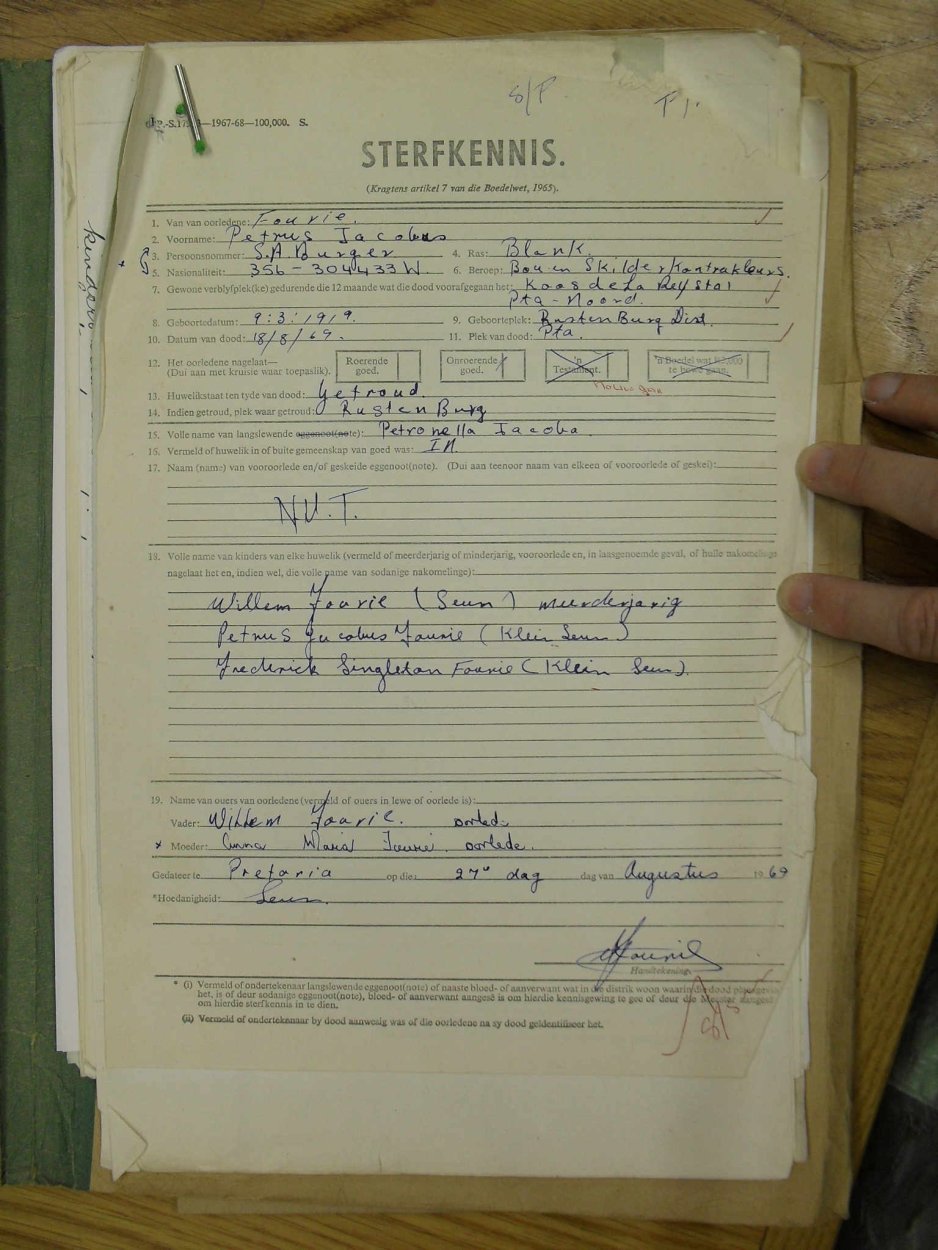 S/P
—1967-68—100,000. S.
STERFKENNIS.
(Kragtens artikel 7 van die Boedelwet, 1965).
1. Van van oorledene: Fourie.
2. Voorname: Petrus Jacobus
3. Persoonsnommer: S.A. Burger 4. Ras: Blank.
5. Nasionaliteit: 356-304433W. 6. Beroep: Bou en Skilder Kontrakteurs.
7. Gewone verblyfplek(ke) gedurende die 12 maande wat die dood voorafgegaan het: Koos de La Rey Star
Pta-Noord.
8. Geboortedatum: 9:3:1919. 9. Geboorteplek: Rustenburg Dist.
10. Datum van dood: 18/8/69. 11. Plek van dood: Pta.
12. Het oorledene nagelaat— Roerende Onroerende 'n 'n Boedel wat
(Dui aan met kruisie waar toepaslik). goed. goed. Testament. te bowe gaan.
13. Huwelikstaat ten tyde van dood: Getroud.
14. Indien getroud, plek waar getroud: RustenBurg
15. Volle name van langslewende eggenoot(note): Petronella Jacoba.
16. Vermeld of huwelik in of buite gemeenskap van goed was: IN.
17. Naam (name) van vooroorlede en/of geskeide eggenoot(note). (Dui aan teenoor naam van elkeen of vooroorlede of geskei):
N.V.T.
18. Volle name van kinders van elke huwelik (vermeld of meerderjarig of minderjarig, vooroorlede en, in laasgenoemde geval, of hulle nakomelinge
nagelaat het en, indien wel, die volle name van sodanige nakomelinge):
Willem Fourie (Seun) meerderjarig
Petrus Jacobus Fourie (Klein Seun)
Frederick Singleton Fourie (Klein Seun).
19. Name van ouers van oorledene (vermeld of ouers in lewe of oorlede is):
Vader: Willem Fourie. oorlede
* Moeder: Anna Maria Fourie. oorlede.
Gedateer te Pretoria op die: 27e dag dag van Augustus 1969
*Hoedanigheid: Seun.
Handtekening.
* (i) Vermeld of ondertekenaar langslewende eggenoot(note) of naaste bloed- of aanverwant wat in die distrik woon waarin die dood plaasgevind
het, is of deur sodanige eggenoot(note), bloed- of aanverwant aangesê is om hierdie kennisgewing te gee of deur die Meester aangesê
om hierdie sterfkennis in te dien.
(ii) Vermeld of ondertekenaar by dood aanwesig was of die oorledene na sy dood geïdentifiseer het.
kinders